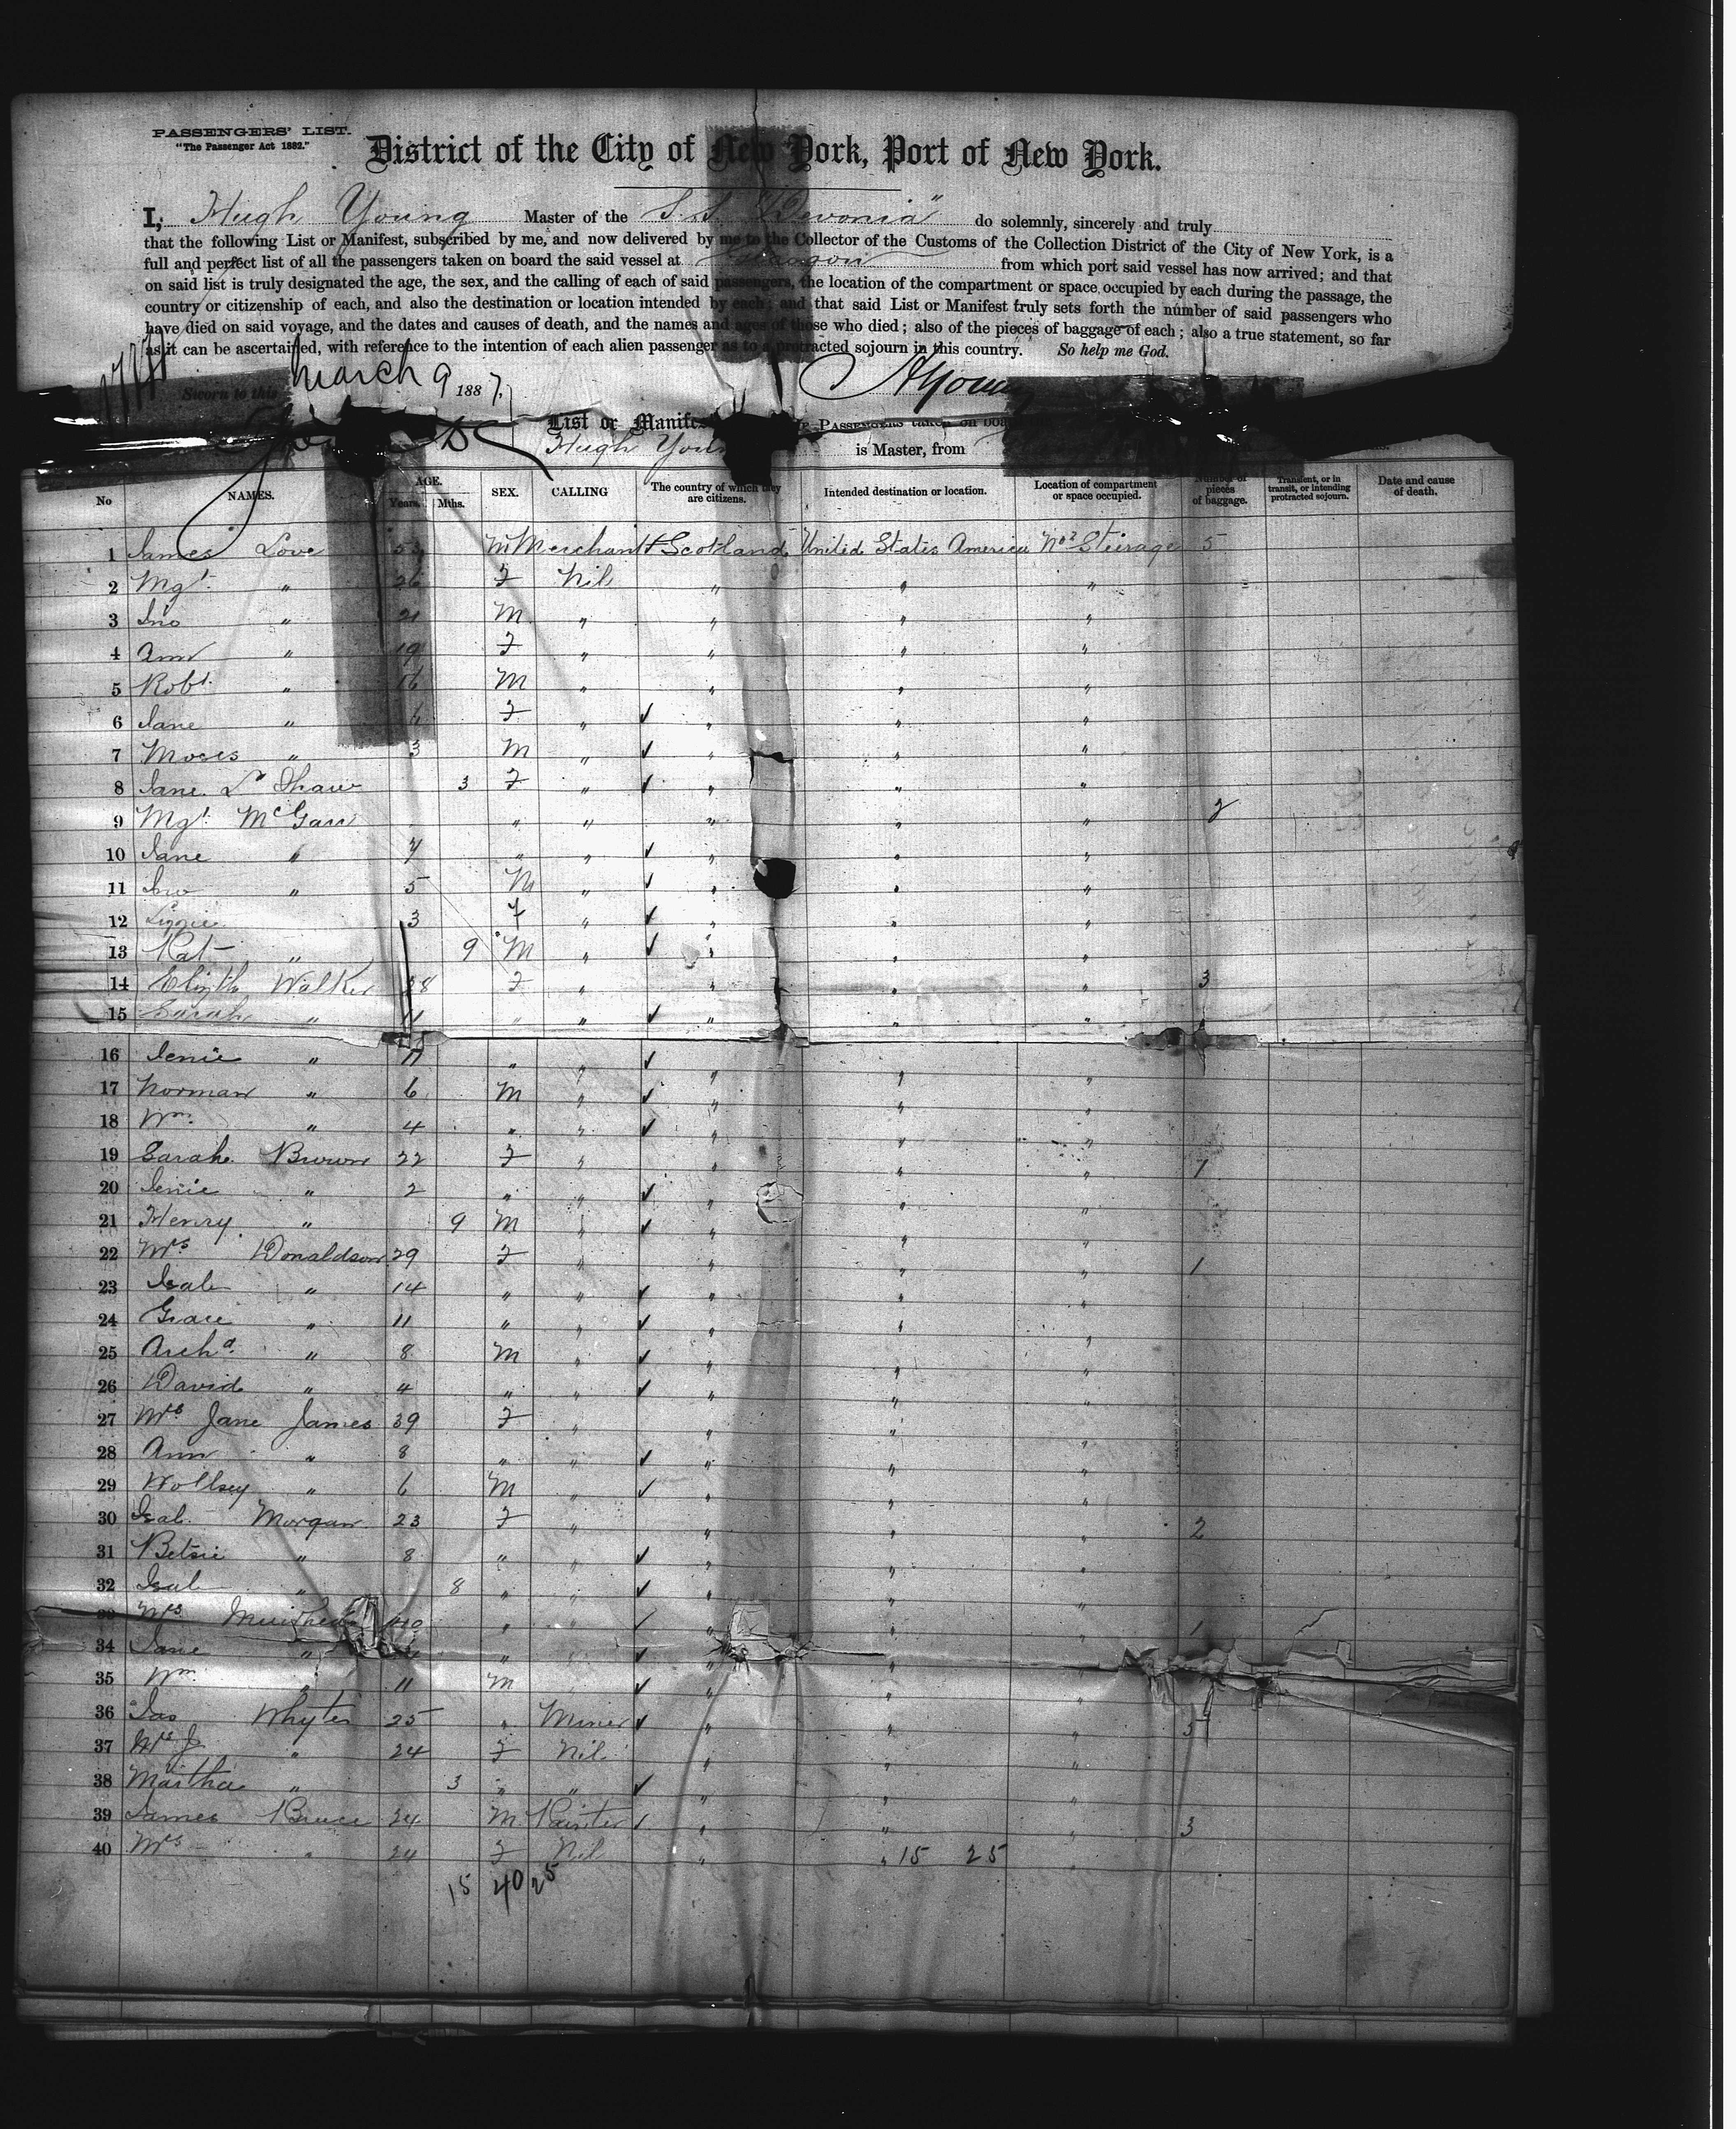 PASSENGERS' LIST.
"The Passenger Act 1882."
District of the City of New York, Port of New York.
I, Hugh Young Master of the S.S. "Devonia" do solemnly, sincerely and truly
that the following List or Manifest, subscribed by me, and now delivered by me to the Collector of the Customs of the Collection District of the City of New York, is a
full and perfect list of all the passengers taken on board the said vessel at Glasgow from which port said vessel has now arrived; and that
on said list is truly designated the age, the sex, and the calling of each of said passengers, the location of the compartment or space occupied by each during the passage, the
country or citizenship of each, and also the destination or location intended by each; and that said List or Manifest truly sets forth the number of said passengers who
have died on said voyage, and the dates and causes of death, and the names and ages of those who died; also of the pieces of baggage of each; also a true statement, so far
as it can be ascertained, with reference to the intention of each alien passenger as to a protracted sojourn in this country. So help me God.
Sworn to this March 9 1887. HYoung
List or Manifes Passengers taken on boa
Hugh Youn is Master, from
No NAMES. AGE. Years. Mths. SEX. CALLING The country of which they are citizens. Intended destination or location. Location of compartment or space occupied. Number of pieces of baggage. Transient, or in transit, or intending protracted sojourn. Date and cause of death.
1 James Love M Merchant Scotland United States America No 2 Steerage 5
2 Mgt. " 26 F Nil " " "
3 Jno " 21 M " " " "
4 Ann " 19 F " " " "
5 Robt. " 16 M " " " "
6 Jane " F " ✓ " " "
7 Moses " 3 M " ✓ " " "
8 Jane L Shaw 3 F " ✓ " " "
9 Mgt. McGaw " " " " " 2
10 Jane " 7 " " ✓ " " "
11 Jno " 5 M " ✓ " " "
12 Lizzie 3 F " ✓ " " "
13 Pat " 9 M " ✓ " " "
14 Elizth Walker 28 F " " " " 3
15 Sarah " 11 " " ✓ " " "
16 Jenie " " ✓ " " "
17 Norman " 6 M " ✓ " " "
18 Wm. " 4 " " ✓ " " "
19 Sarah Brown 22 F " " " " 1
20 Jenie " 2 " " ✓ " " "
21 Henry " 9 M " ✓ " " "
22 Mrs Donaldson 29 F " " " " 1
23 Isab " 14 " " ✓ " " "
24 Grace " 11 " " ✓ " " "
25 Archd. " 8 M " ✓ " " "
26 David " 4 " " ✓ " " "
27 Mrs Jane James 39 F " " " "
28 Ann " 8 " " ✓ " " "
29 Wollsey " 6 M " ✓ " " "
30 Isab. Morgan 23 F " " " " 2
31 Betsie " 8 " " ✓ " " "
32 Isab " 8 " " ✓ " " "
33 Mrs 40 " " ✓ " " " 1
34 Jane " " ✓ " " "
35 Wm " 11 M ✓ " " "
36 Jas Whyte 25 " Miner ✓ " " " 5
37 Mrs J " 24 F Nil " " "
38 Martha " 3 " " ✓ " " "
39 James Bruce 24 M Painter ✓ " " " 3
40 Mrs " 24 F Nil " " 15 25
15 40 25